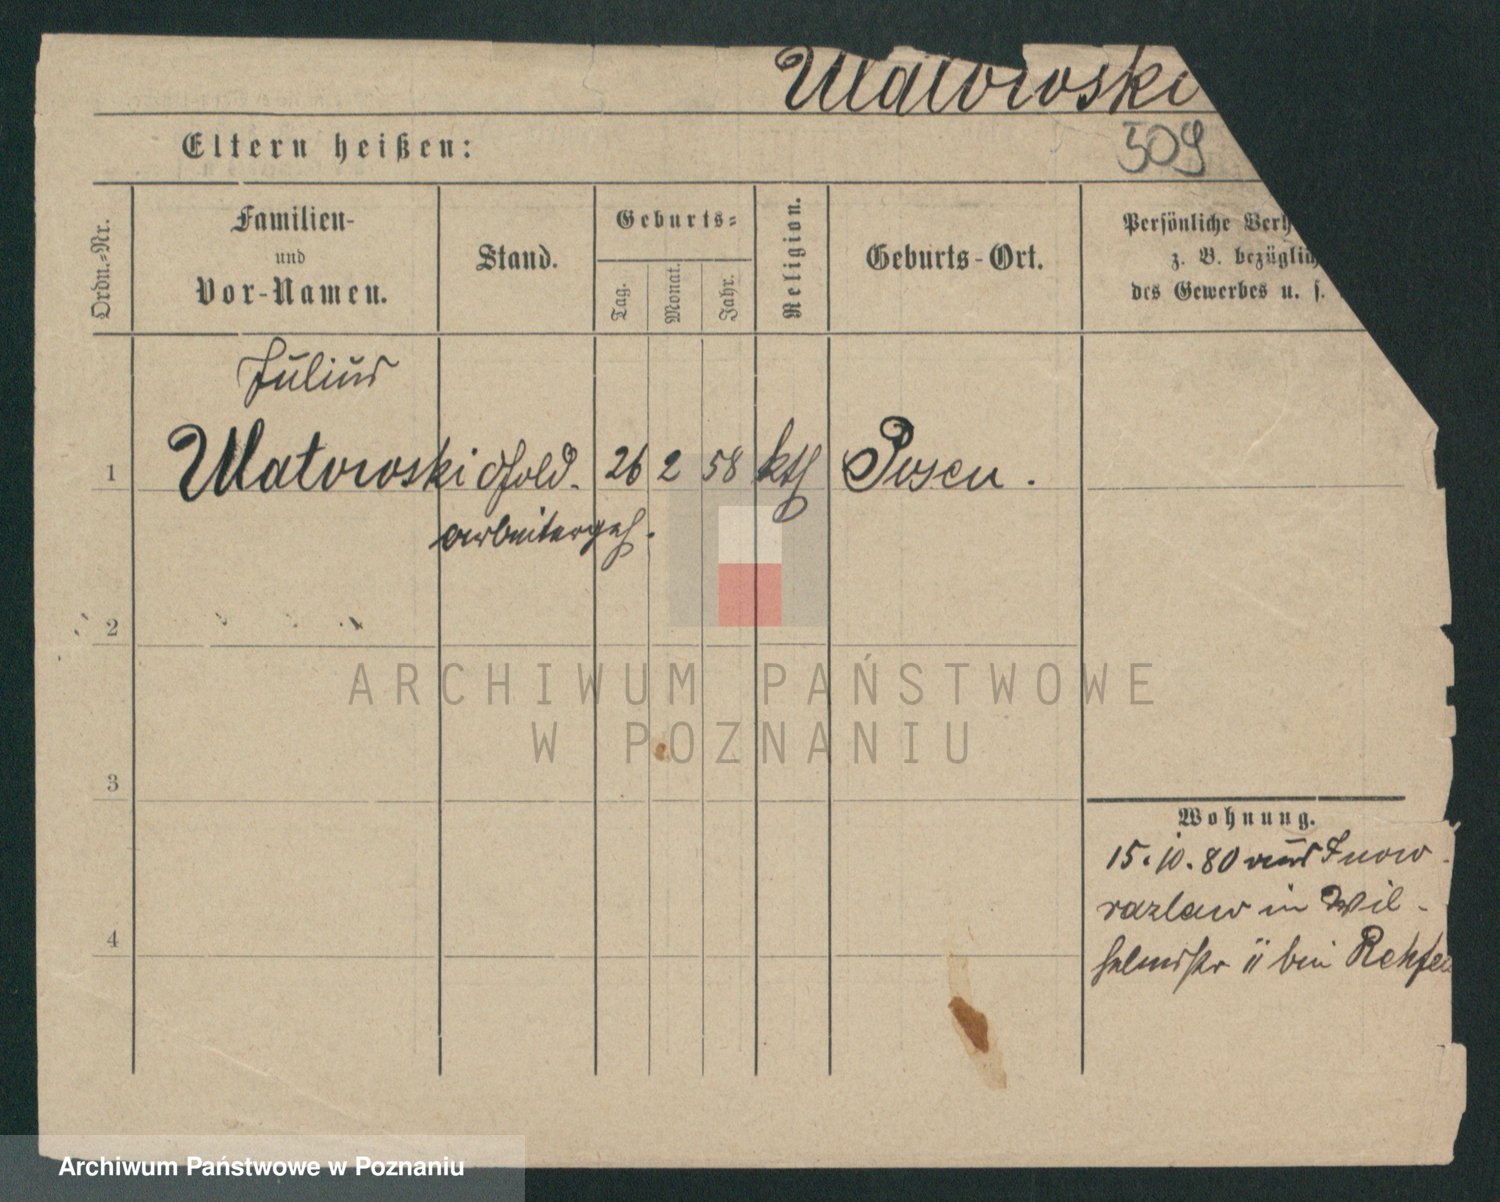 Watowski
509
Eltern heißen:
Ordn.-Nr.
Familien-
und
Vor-Namen.
Stand.
Geburts-
Tag.
Monat.
Jahr.
Religion.
Geburts-Ort.
Persönliche Verh
z. B. bezüglich
des Gewerbes u. s.
Julius
1 Watowski Gold. 26 2 58 kth Posen.
arbeitergeh.
2
3
4
Wohnung.
15.10.80 aus Inow-
razlaw in Wil-
helmstr 11 bei Rehfe
ARCHIWUM PAŃSTWOWE
W POZNANIU
Archiwum Państwowe w Poznaniu